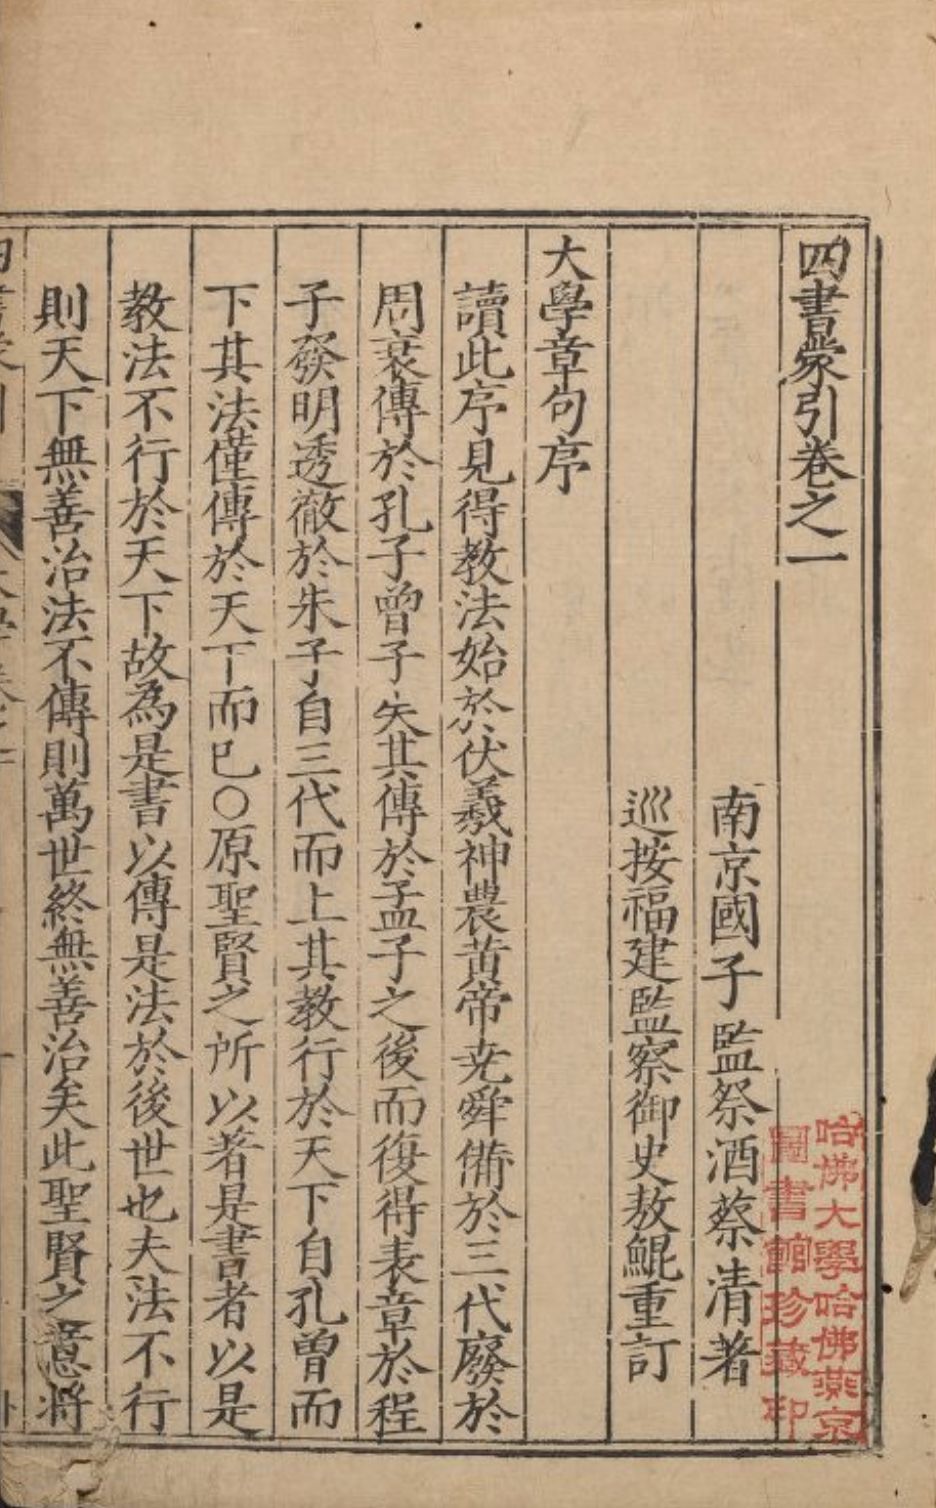 四書蒙引卷之一
南京國子監祭酒蔡清著
巡按福建監察御史敖鯤重訂
大學章句序
讀此序見得教法始於伏羲神農黄帝尭舜備於三代廢於
周衰傳於孔子曾子失其傳於孟子之後而復得表章於程
子發明透徹於朱子自三代而上其教行於天下自孔曾而
下其法僅傳於天下而已〇原聖賢之所以著是書者以是
教法不行於天下故為是書以傳是法於後世也夫法不行
則天下無善治法不傳則萬世終無善治矣此聖賢之意將
哈佛大學哈佛燕京
圖書館珍藏印